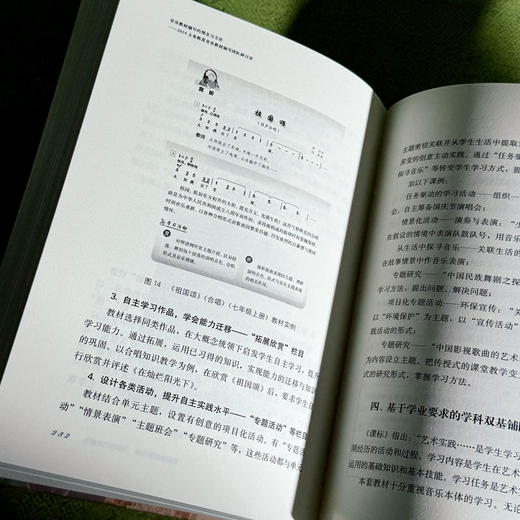 音乐教材编写的理念与方法
——2024义务教育音乐教材编写团队研讨录
赏析
祖国颂
（混声合唱）
图 14 《祖国颂》（合唱）（七年级上册）教材实例
3. 自主学习作品，学会能力迁移——“拓展欣赏”栏目
教材选择同类作品，在大概念统领下启发学生自主学习，提升
学习能力。通过拓展，运用已习得的知识，实现能力的迁移与知识
的巩固。以合唱知识教学为例，在欣赏《祖国颂》后，要求学生自
行欣赏并评述《在灿烂阳光下》。
4. 设计各类活动，提升自主实践水平——“专题活动”等栏目
教材结合单元主题，设置有创意的项目化活动。有“专题活
动”“情景表演”“主题班会”“专题研究”等，这些活动都与单元
232
主题密切关联并从学生生活中提取
多变的创意主动实践。通过“任务
探寻音乐”等转变学生学习方式，提
如以下课例：
任务驱动的学习活动——组织
会，自主筹备国庆节演唱会；
情景化活动——演奏与表演：“少
在假设的情境中演奏队鼓队号，用音乐
从生活中探寻音乐——关联生活的
在故事情景中作音乐表演；
专题研究——“中国民族舞剧之探
学习方法，提出问题、解决问题；
项目化专题活动——“环保宣传
以“环境保护”为主题，以“宣传活动”
践的形式；
专题研究——“中国影视歌曲的艺术
为内容设立主题。把传授式的课堂教学变
式的研究形式，掌握学习方法。
四、基于学业要求的学科双基铺
《课标》指出：“艺术实践……是学生学习
须经历的活动和过程。学习内容是学生在艺术
运用的基础知识和基本技能。学习任务是艺术
本套教材十分重视音乐本体的学习。无论